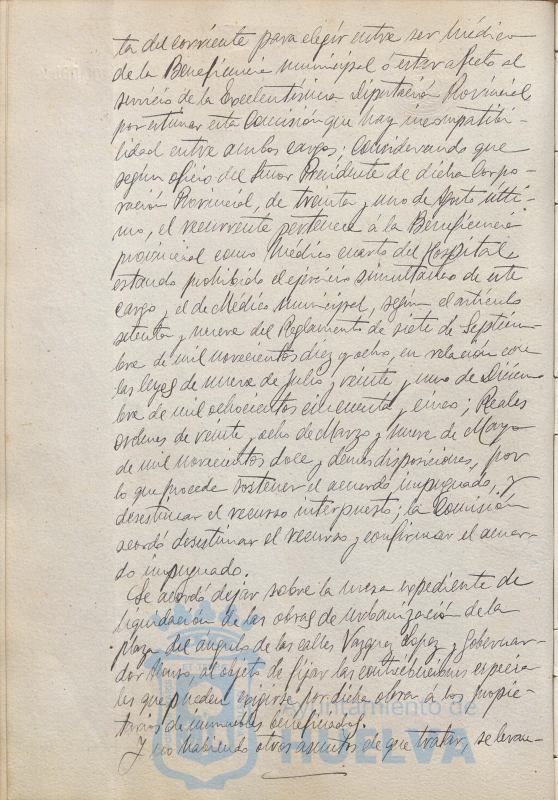 ta del corriente para elegir entre ser Médico
de la Beneficencia Municipal ó estar afecto al
servicio de la Excelentísima Diputación Provincial,
por estimar esta Comisión que hay incompatibi-
lidad entre ambos cargos; Considerando que
según oficio del Señor Presidente de dicha Corpo-
ración Provincial, de treinta y uno de Agosto últi-
mo, el recurrente pertenece á la Beneficencia
provincial como Médico cuarto del Hospital,
estando prohibido el ejercicio simultáneo de este
cargo y el de Médico Municipal, según el artículo
setenta y nueve del Reglamento de siete de Septiem-
bre de mil novecientos diez y ocho, en relación con
las leyes de nueve de Julio y veinte y uno de Diciem-
bre de mil ochocientos cincuenta y cinco; Reales
ordenes de veinte y ocho de Marzo y nueve de Mayo
de mil novecientos doce y demas disposiciones, por
lo que procede sostener el acuerdo impugnado, y
desestimar el recurso interpuesto; la Comisión
acordó desestimar el recurso y confirmar el acuer-
do impugnado.
Se acordó dejar sobre la mesa expediente de
liquidación de las obras de urbanización de la
plaza del ángulo de las calles Vazquez Lopez y Goberna-
dor Alonso, al objeto de fijar las contribuciones especia-
les que pueden exigirse por dicha obra á los propie-
tarios de inmuebles beneficiados.
Y no habiendo otros asuntos de que tratar, se levan-
Ayuntamiento de
HUELVA